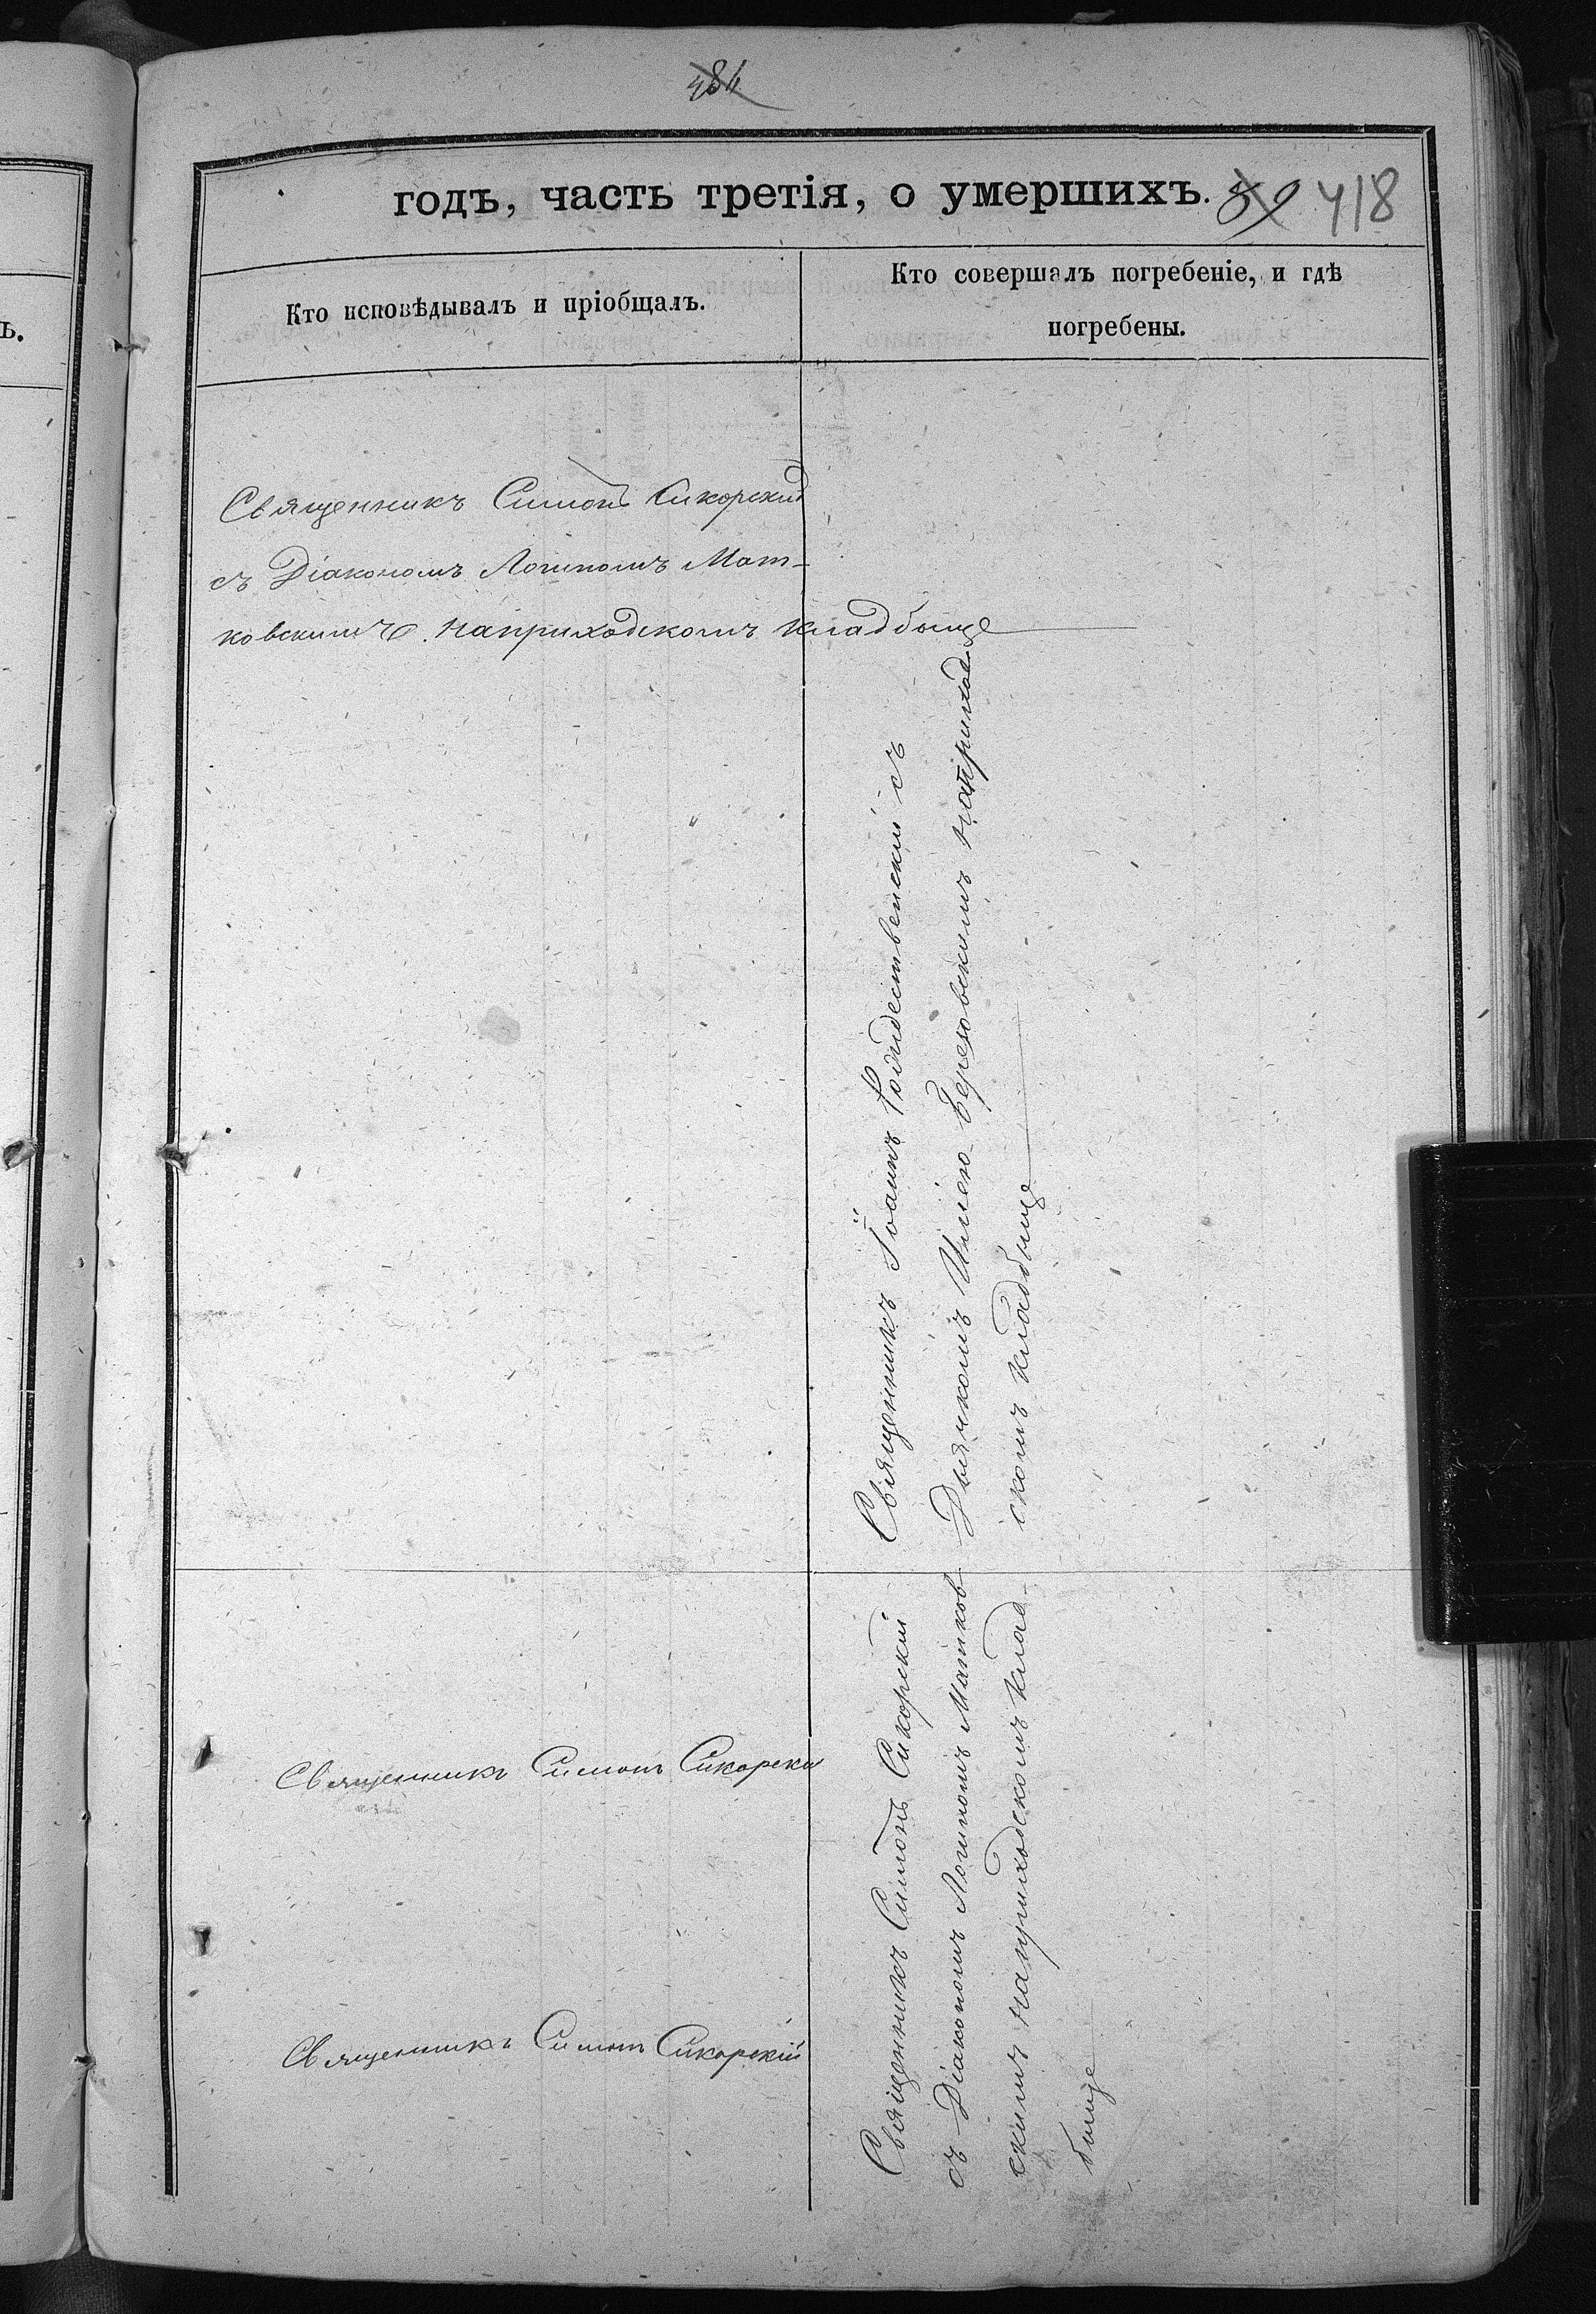 484
годъ, часть третія, о умершихъ. 59 418
Кто исповѣдывалъ и пріобщалъ.
Кто совершалъ погребеніе, и гдѣ
погребены.
Священникъ Симонъ Сикорскій
съ Діакономъ Логиномъ Мат-
ковскимъ наприходскомъ кладбыще
Священникъ Іоаннъ Рождественскій съ
Дьячкомъ Иліею Березовскимъ наприход-
скомъ кладбыще
Священникъ Симонъ Сикорскі
Священникъ Симонъ Сикорскій
Священникъ Симонъ Сикорскій
съ Діакономъ Логиномъ Матков-
скимъ наприходскомъ клад-
быще
ъ.